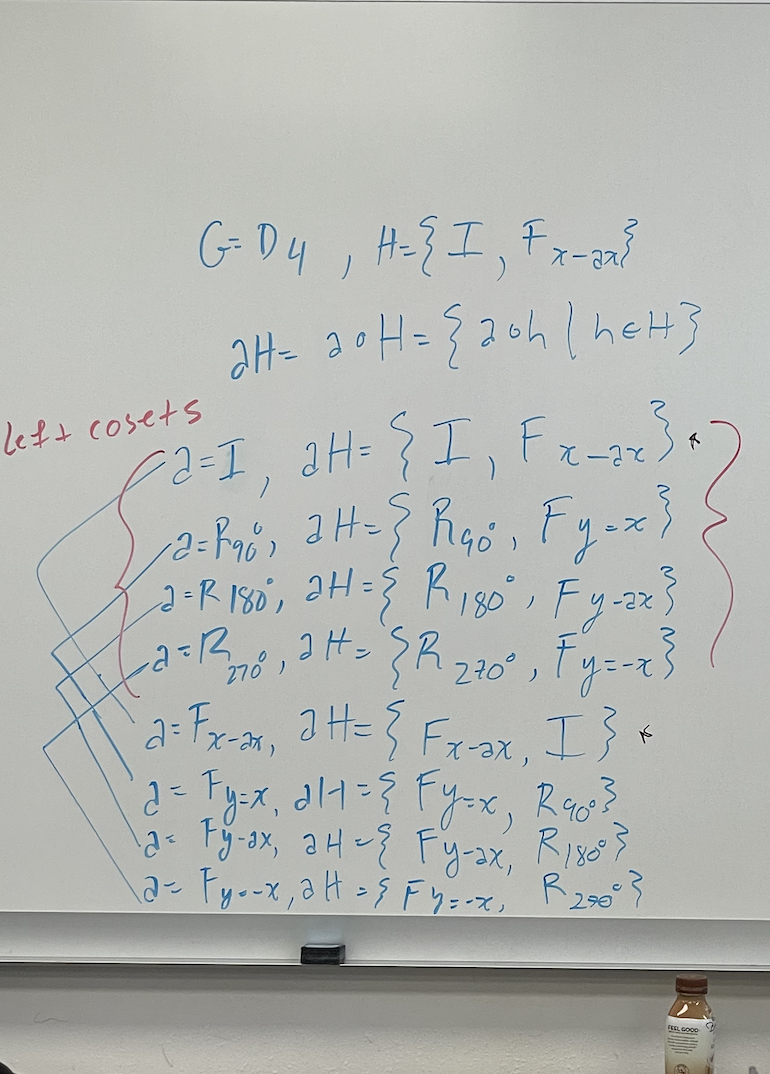 G=D4, H={I, Fx-ax}
aH= a∘H={a∘h | h∈H}
left cosets
a=I, aH={I, Fx-ax}
a=R90°, aH={R90°, Fy=x}
a=R180°, aH={R180°, Fy-ax}
a=R270°, aH={R270°, Fy=-x}
a=Fx-ax, aH={Fx-ax, I}
a=Fy=x, aH={Fy=x, R90°}
a=Fy-ax, aH={Fy-ax, R180°}
a=Fy=-x, aH={Fy=-x, R270°}
FEEL GOOD